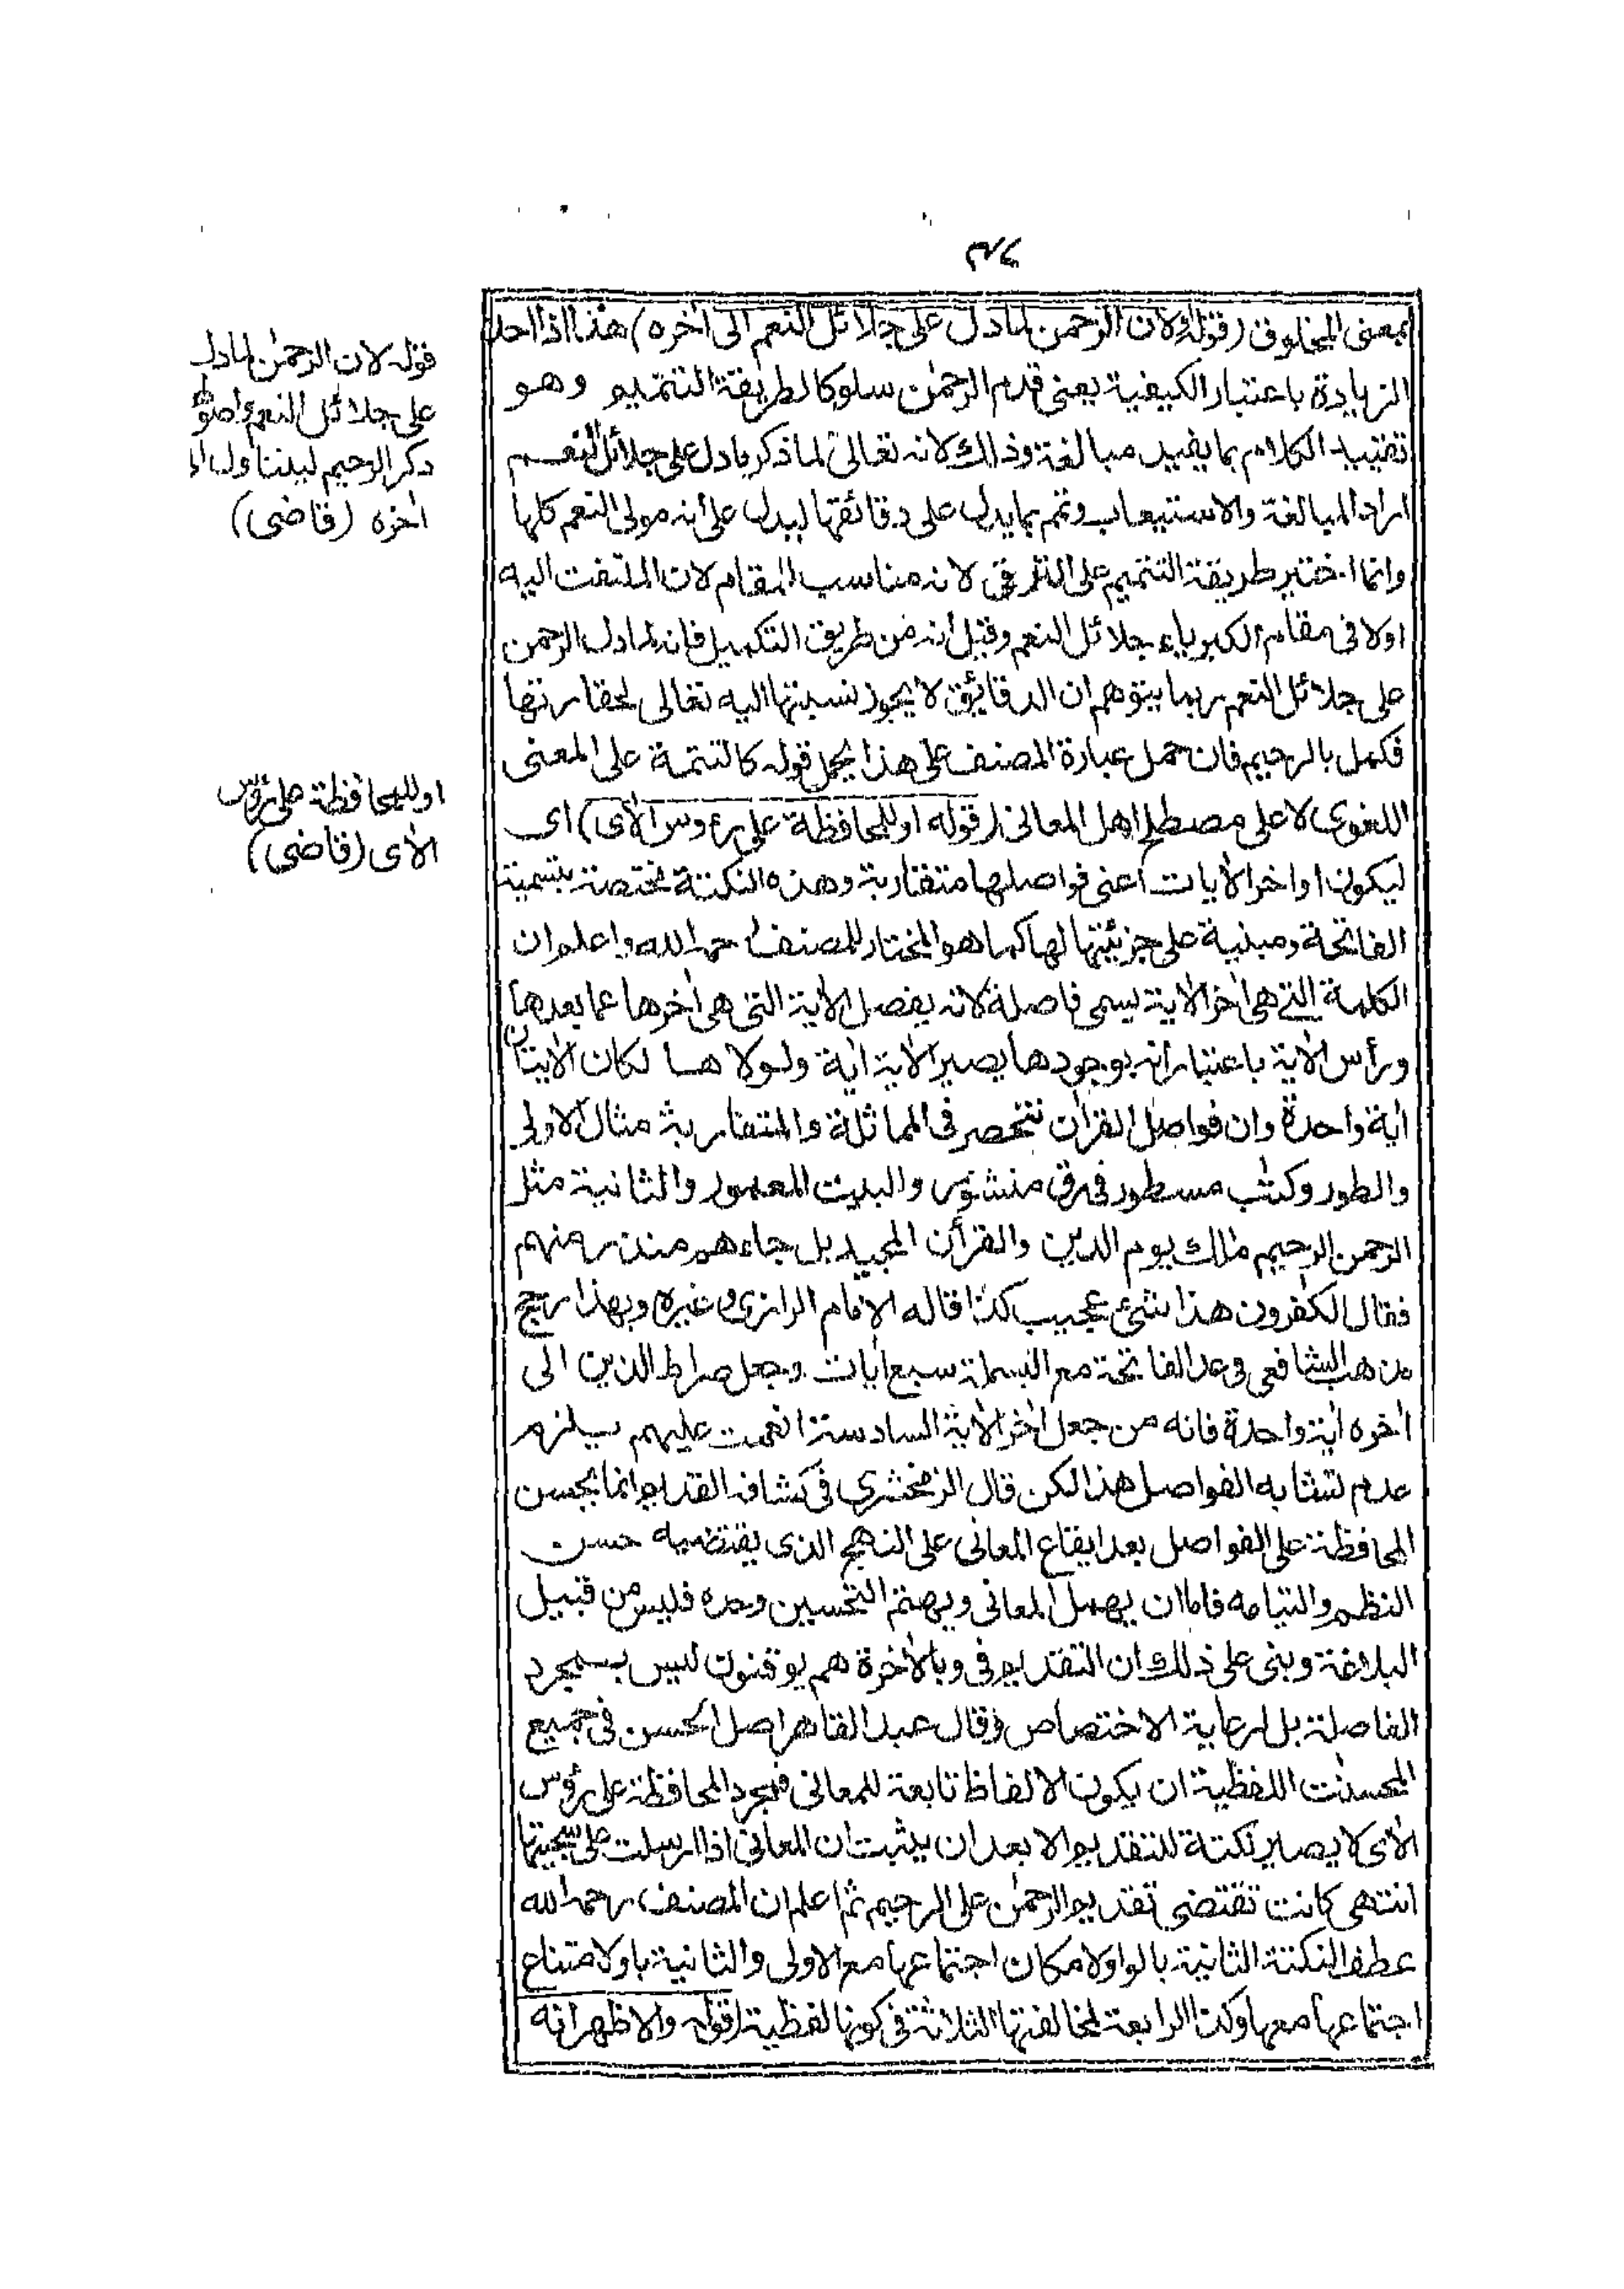 بمعنى المخلوق (قوله ولان الرحمن لما دل على جلائل النعم الى اخره) هذا اذا احد
الزيادة باعتبار الكيفية يعنى قدم الرحمٰن سلوكا لطريقة التتميم وهو
تقييد الكلام بما يفيد مبالغة وذلك لانه تعالى لما ذكر ما دل على جلائل النعم
اراد المبالغة والاستيعاب وتمم بما يدل على دقائقها ليدل على أنه مولى النعم كلها
وانما اختير طريقة التتميم على الترقى لانه مناسب المقام لان الملتفت اليه
اولا فى مقام الكبرياء جلائل النعم وقيل أنه من طريق التكميل فانه لما دل الرحمن
على جلائل النعم ربما يتوهم ان الدقائق لا يجوز نسبتها اليه تعالى لحقارتها
فكمل بالرحيم فان حمل عبارة المصنف على هذا يحمل قوله كالتتمة على المعنى
اللغوى لا على مصطلح اهل المعانى (قوله او للمحافظة على رءوس الأى) اى
ليكون اواخر الأيات أعنى فواصلها متقاربة وهذه النكتة مختصة بتسمية
الفاتحة ومبنية على جزئيتها لها كما هو المختار للمصنف رحمه الله واعلم ان
الكلمة التى هى اخر الأية يسمى فاصلة لانه يفصل الأية التى هى أخرها عما بعدها
ورأس الأية باعتبار أنه بوجودها يصير الأية أية ولولا هسا لكان الأيتان
أية واحدة وان فواصل القرأن تنحصر فى المماثلة والمتقاربة مثال الاولى
والطور وكتٰب مسطور فى رق منشور والبيت المعمور والثانية مثل
الرحمن الرحيم مٰلك يوم الدين والقرأن المجيد بل جاءهم منذر منهم
فقال الكٰفرون هذا شئ عجيب كذا قاله الامام الرازى وغيره وبهذا رجح
مذهب الشافعى فى عد الفاتحة مع البسملة سبع أيات وجعل صراط الذين الى
أخره أية واحدة فانه من جعل أخر الأية السادسة انعمت عليهم يلزم
عدم تشابه الفواصل هذا لكن قال الزمخشرى فى كشافه القديم وانما يحسن
المحافظة على الفواصل بعد ايقاع المعانى على النهج الذى يقتضيه حسن
النظم والتيامه فاما ان يهمل المعانى ويهتم التحسين وحده فليس من قبيل
البلاغة وبنى على ذلك ان التقديم فى وبالأخرة هم يوقنون ليس بمجرد
الفاصلة بل لرعاية الاختصاص وقال عبد القاهر اصل الحسن فى جميع
المحسنٰت اللفظية ان يكون الالفاظ تابعة للمعانى فمجرد المحافظة على رؤس
الأى لا يصير نكتة للتقديم الا بعد ان يثبت ان المعانى اذا ارسلت على سجيتها
انتهى كانت تقتضى تقديم الرحمٰن على الرحيم ثم اعلم ان المصنف رحمه الله
عطف النكتة الثانية بالواو لامكان اجتماعها مع الاولى والثانية باو لامتناع
اجتماعها معها وكذا الرابعة لمخالفتها الثلاثة فى كونها لفظية (قوله والاظهر انه
قوله لان الرحمٰن لما دل
على جلائل النعم واصولها
ذكر الرحيم ليتناول الى
اخره (قاضى)
او للمحافظة على رؤس
الأى (قاضى)